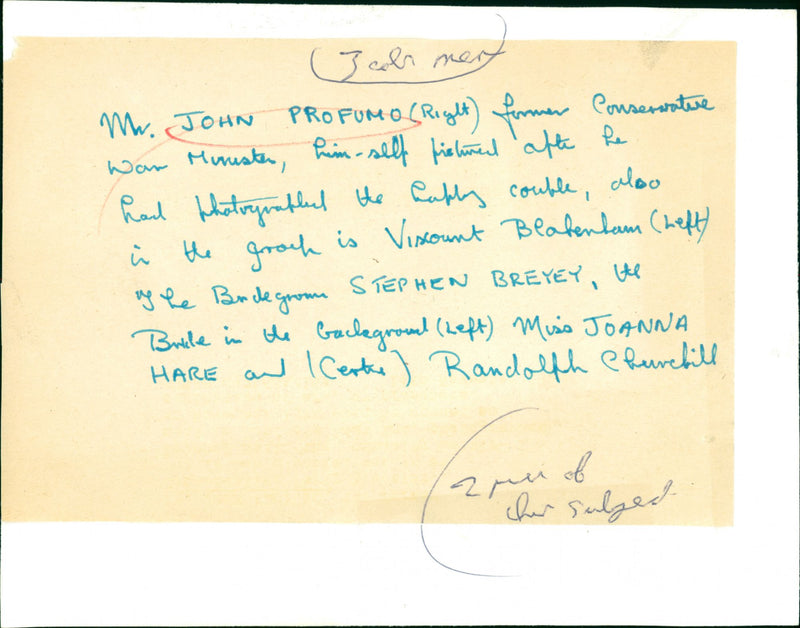 3 cols max
Mr. JOHN PROFUMO (Right) former Conservative
War Minister, him-self pictured after he
had photographed the happy couple, also
in the group is Viscount Blakenham (Left)
The Bridegroom STEPHEN BREYEY, the
Bride in the background (Left) Miss JOANNA
HARE and (Centre) Randolph Churchill
2 of
subject